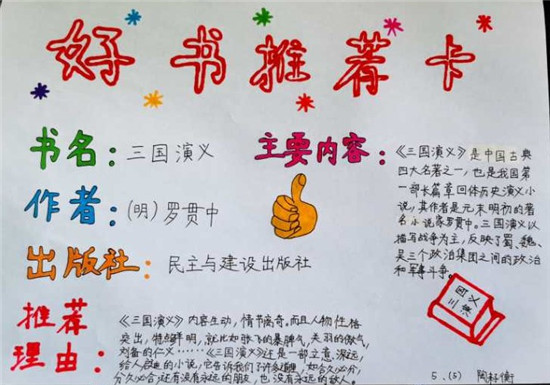 好书推荐卡
书名：三国演义
作者：(明)罗贯中
出版社：民主与建设出版社
主要内容：
《三国演义》是中国古典
四大名著之一，也是我国第
一部长篇章回体历史演义小
说，其作者是元末明初的著
名小说家罗贯中。三国演义以
描写战争为主，反映了蜀、魏、
吴三个政治集团之间的政治
和军事斗争。
推荐
理由：
《三国演义》内容生动，情节离奇。而且人物性格
突出，特鲜明，就比如张飞的暴脾气，关羽的傲气
刘备的仁义……《三国演义》还是一部立意深远，
给人启迪的小说，它告诉我们了许多道理，如合久必分，
分久必合；还有没有永远的朋友，也没有永远的敌人。
三国
演义
5.(5)